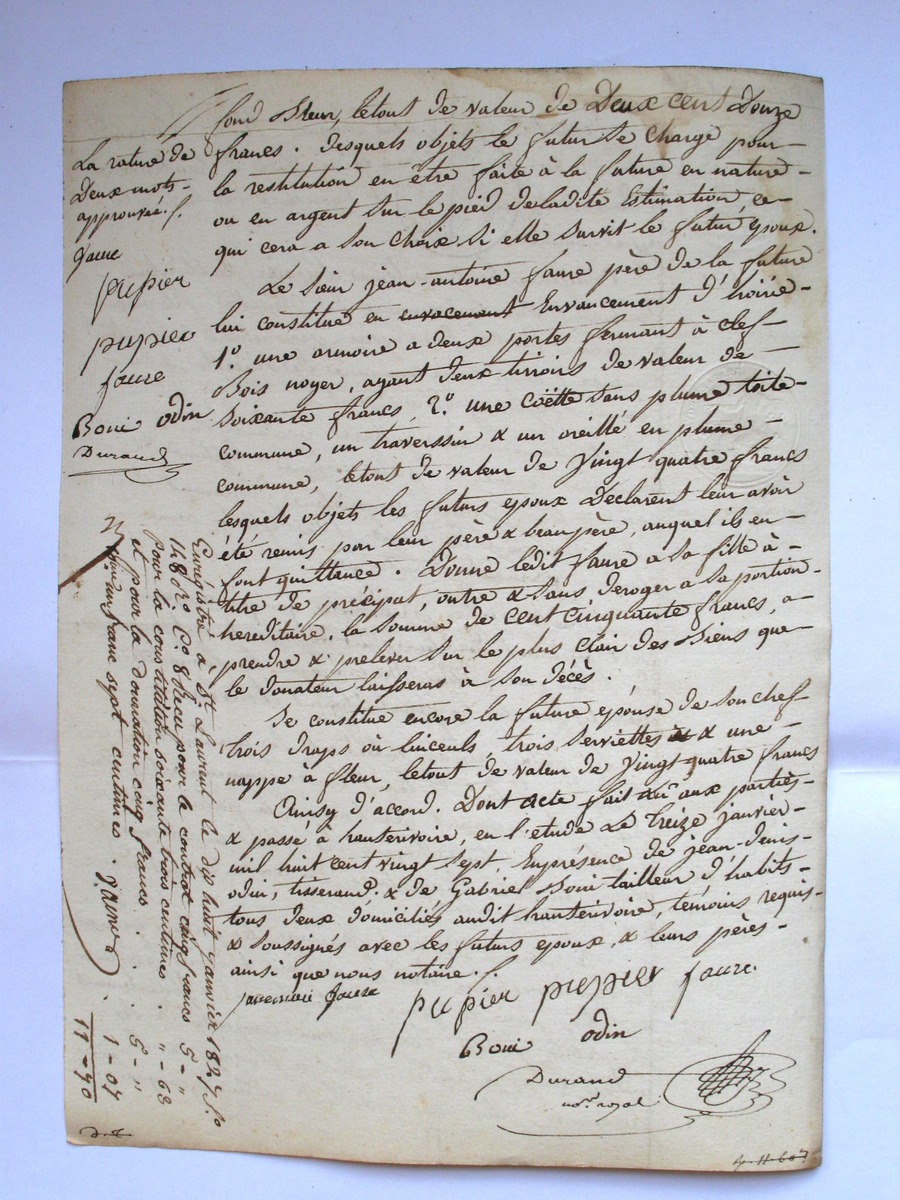 fond bleu, letout de valeur de Deux cent Douze
francs. desquels objets le futur se charge pour
la restitution en être faite à la future en nature
ou en argent sur le pied deladite Estimation, ce
qui cera a son choix si elle survit le futur époux.
Le sieur jean-antoine faure père de la future
lui constitue en envacement Envancement d'hoirie
1º. une armoire a deux portes fermant à clef
Bois noyer, ayant deux tiroirs de valeur de
soixante francs, 2º. une coëtte sans plume toile
commune, un traverssin & un oreillé en plume
commune, letout de valeur de Vingt quatre francs
lesquels objets les futurs epoux Déclarent leur avoir
été remis par leur père & beaupère, auquel ils en
font quittance. Donne ledit faure a sa fille à
titre de précipat, outre & sans deroger a sa portion
hereditaire, la somme de cent cinquante francs, a
prendre & prélever sur le plus clair des Biens que
le donateur laisseras à son décès.
Se constitue encore la future epouse de son chef
trois draps où linceuls, trois serviettes & une
nappe à fleur, letout de valeur de Vingt quatre francs
Ainsy d'accord. Dont acte fait Lu aux parties
& passé à hauterivoire, en l'etude Le Treize janvier
mil huit cent vingt sept, Enprésence de jean-denis
odin, tisserand, & de Gabriel Boui tailleur d'habits
tous deux domiciliés audit hauterivoire, témoins requis
& soussignés avec les futurs epoux, & leurs pères
ainsi que nous notaire.
faure
pupier pupier faure
Boui odin
Durand
not. royal
La rature de
Deux mots
approuvée.
faure
pupier
pupier
faure
Boui odin
Durand
Enregistré à St. Laurent le dix huit janvier 1827 fo.
148 ro. C. 8 Recu pour le contrat cinq francs 5 - "
Pour la constitution soixante trois centimes . " - 63
et pour la donation cinq francs . . 5 - "
un franc sept centimes . . 1 - 07
11 - 70